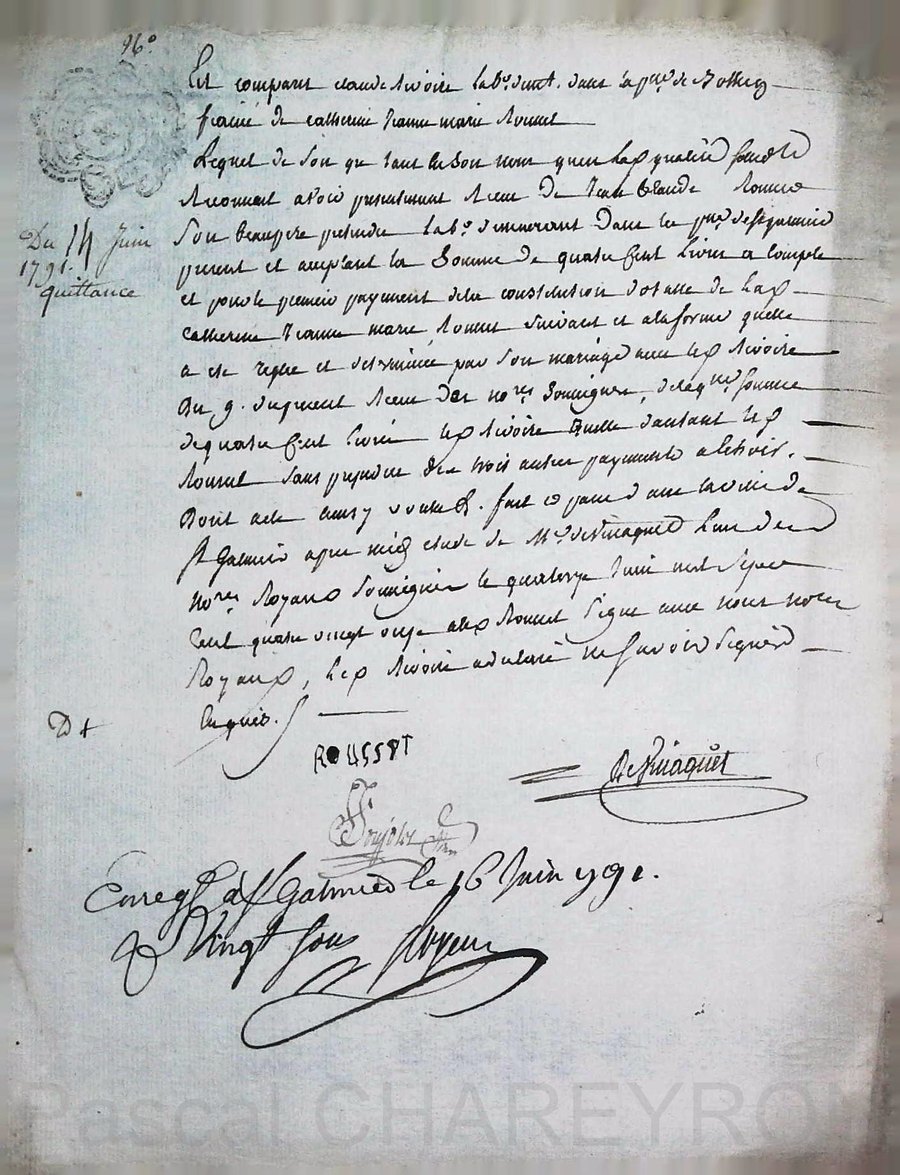 96°
Est comparu claude Rivoire lab.r demt. dans la psse de
fiancé de catherine Jeanne marie Rousset
Lequel de son gré tant en son nom quen lad qualité
Reconnait avoir presentement Receu de Jean Claude Rousset
Son beaupere lab.r demeurant Dans la psse de
present et acceptant la Somme de quatre Cent Livres a compte
et pour le premier payement dela constitution dotalle de lad
Catherine Jeanne marie Rousset suivant et alaforme quelle
a été reglé et determinée par Son mariage avec led Rivoire
Du 9. du present Receu Des no.res Soussignés, de laq.lle somme
de quatre Cent Livres led Rivoire quitte dautant led
Rousset sans prejudice des trois autres payements a Echoir.
Dont acte fait et passé dans la ville de
St Galmier apres midy etude de M.e deVinaquet Lun des
No.res Royaux Soussignés le quatorze Juin mil Sept
Cent quatre vingt onze Rousset Signé avec nous no.res
Royaux, Led Rivoire a declaré ne Savoir Signer
Enquis.
Du 14 Juin
1791.
quittance
D+
ROUSSET
DeVinaquet
Enreg.é à St Galmier le 16 Juin 1791.
R Vingt Sous
Pascal CHAREYRON